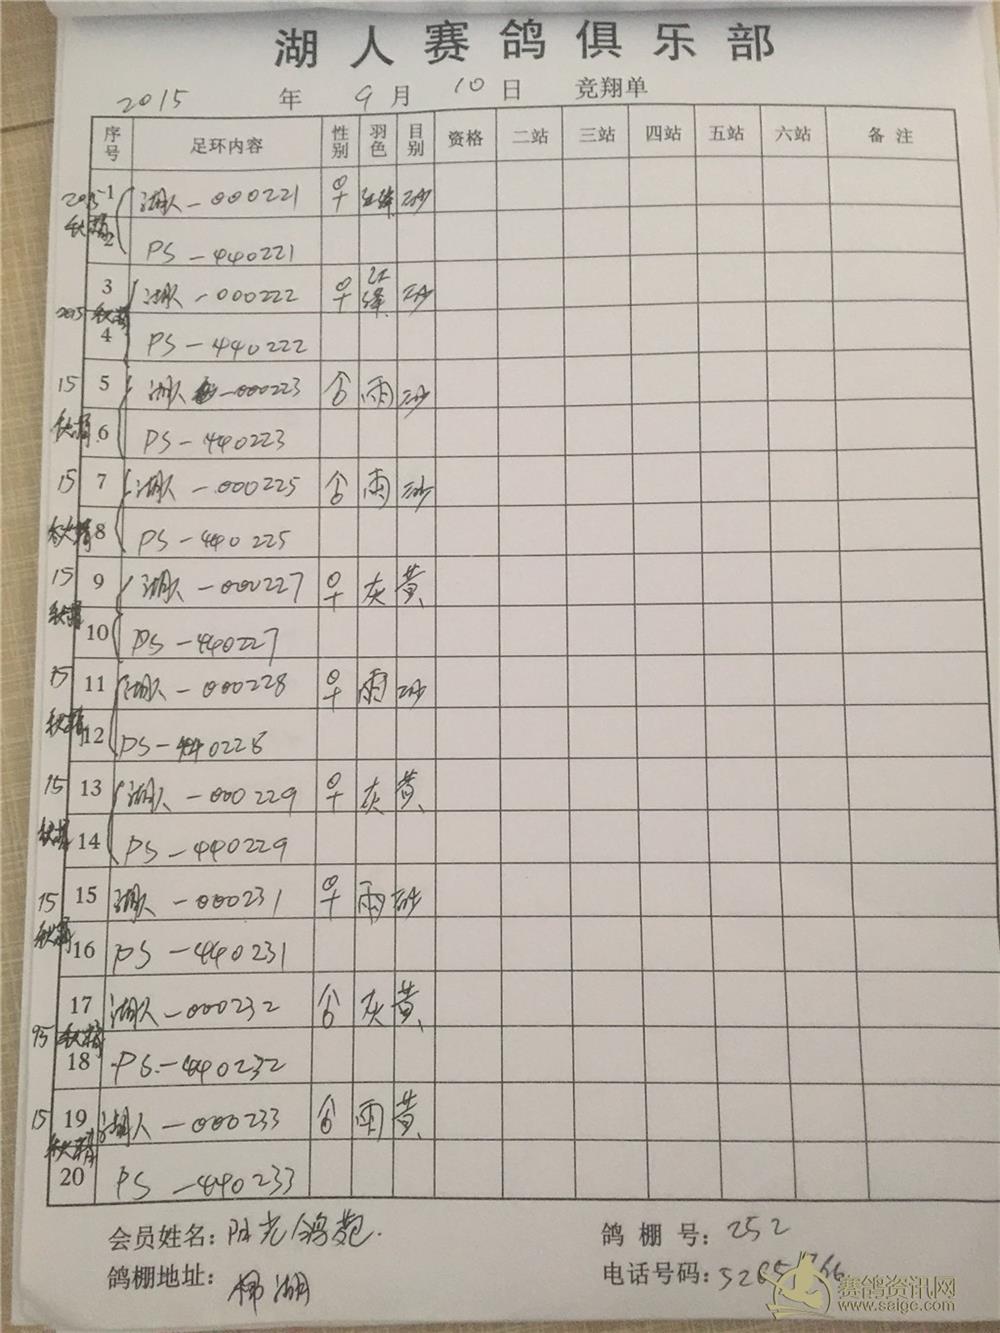 湖人赛鸽俱乐部
2015 年 9 月 10 日 竞翔单
序号 足环内容 性别 羽色 目别 资格 二站 三站 四站 五站 六站 备注
2015 1 湖人-000221 ♀ 红绛 砂
秋 2 PS-440221
3 湖人-000222 ♀ 红绛 砂
2015 秋 4 PS-440222
15 5 湖人-000223 ♂ 雨 砂
秋 6 PS-440223
15 7 湖人-000225 ♂ 雨 砂
秋 8 PS-440225
15 9 湖人-000227 ♀ 灰 黄
秋 10 PS-440227
15 11 湖人-000228 ♀ 雨 砂
秋 12 PS-440228
15 13 湖人-000229 ♀ 灰 黄
秋 14 PS-440229
15 15 湖人-000231 ♀ 雨 砂
秋 16 PS-440231
17 湖人-000232 ♂ 灰 黄
秋 18 PS-440232
15 19 湖人-000233 ♂ 雨 黄
秋 20 PS-440233
会员姓名: 阳光鸽苑 鸽棚号: 252
鸽棚地址: 柳湖 电话号码:
赛鸽资讯网
www.saige.com